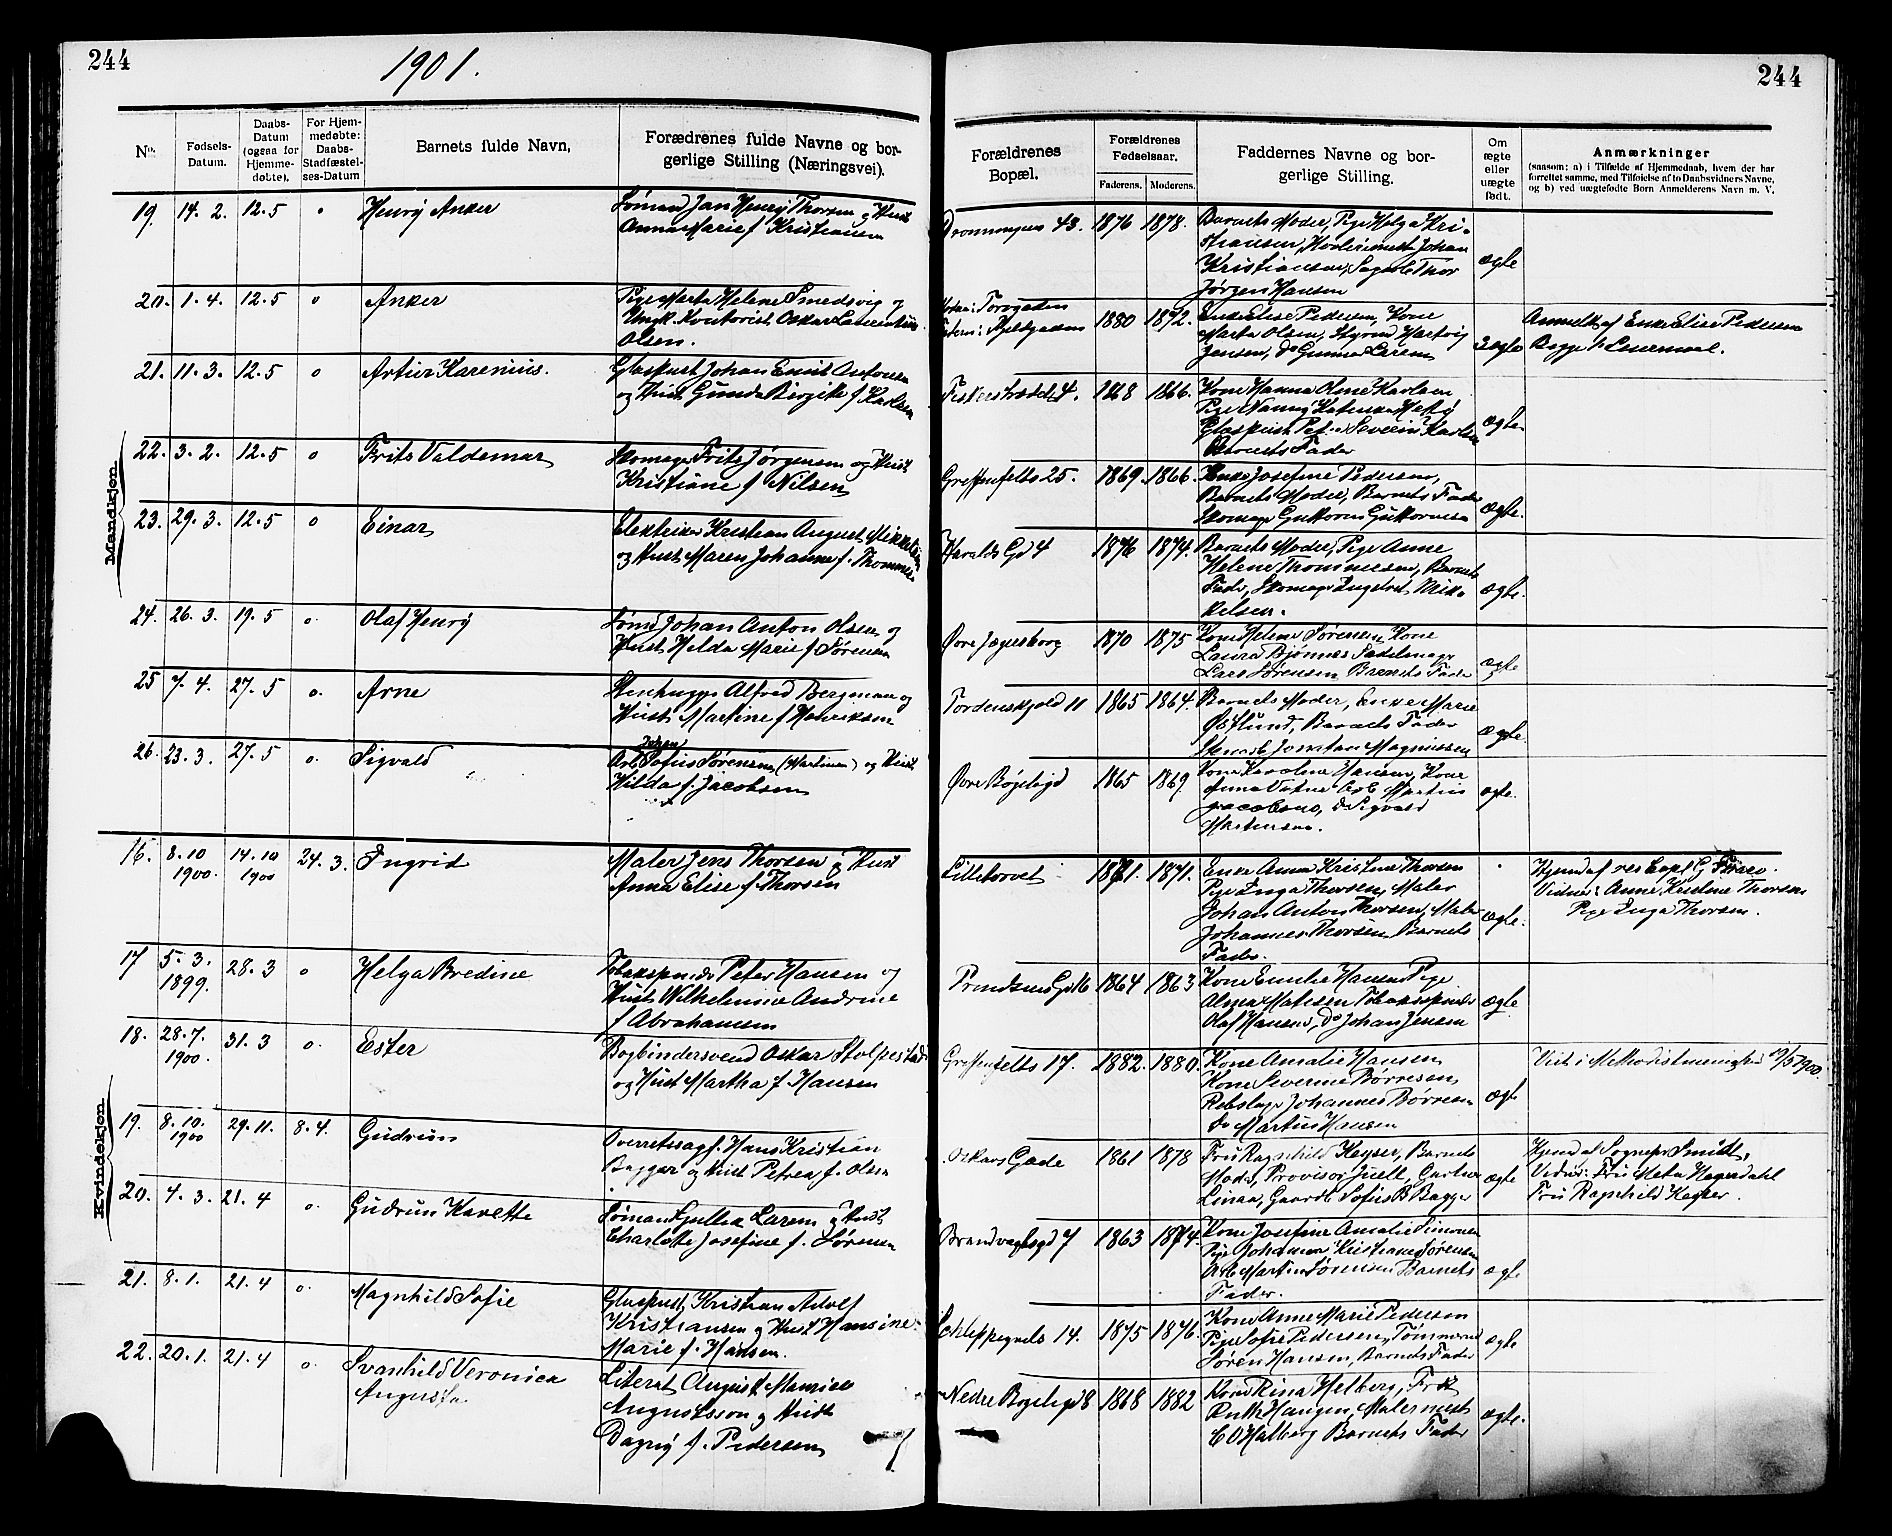 244
1901.
244
No.
Fødsels-
Datum.
Daabs-
Datum
(ogsaa for
Hjemme-
døbte).
For Hjem-
medøbte:
Daabs-
Stadfæstel-
ses-Datum
Barnets fulde Navn,
Forældrenes fulde Navne og bor-
gerlige Stilling (Næringsvei).
Forældrenes
Bopæl.
Forældrenes
Fødselsaar.
Faderens. Moderens.
Faddernes Navne og bor-
gerlige Stilling.
Om
ægte
eller
uægte
født.
Anmærkninger
(saasom: a) i Tilfælde af Hjemmedaab, hvem der har
forrettet samme, med Tilføielse af to Daabsvidners Navne,
og b) ved uægtefødte Børn Anmelderens Navn m. V.
Mandkjøn
19. 14. 2. 12. 5 o Henry Anker
Sømand Jan Henry Thorsen og Hust
Anna Marie f Kristiansen
Dronningens 43. 1876 1878.
Barnets Moder, Pige Helga Kri-
stiansen, Johan
Kristiansen, Thor
Jørgen Hansen
ægte
20. 1. 4. 12. 5 o Anker
Pige Marta Helene Smedsvig og
Ungk. Kontorist Oskar Laurentius
Olsen.
Torvgaden
1880 1872.
Enke Elise Pedersen, Kone
Marta Olsen, Styrm Hartvig
Jensen, do Gunnar Larsen
uægte
Anmeldt af Enke Elise Pedersen
Begge
21. 11. 3. 12. 5 o Artur Karenius.
Glaspust Johan Emil Antonsen
og Hust Gunda Birgitte f Karlsen
Fiskerstrædet 4. 1868 1866.
Kone Hanna Oline Karlsen
Pige Nanny
Glaspust Peter Severin Karlsen
Barnets Fader
ægte.
22. 3. 2. 12. 5 o Frits Valdemar
Skomager Frits Jørgensen og Hust
Kristiane f Nilsen
Griffenfelts 25. 1869. 1866.
Enke Josefine Pedersen,
Barnets Moder, Barnets Fader
Skomager Guttorm Guttormsen
ægte.
23. 29. 3. 12. 5 o Einar
Elektriker Kristian August Mikkelsen
og Hust Maren Johanne f. Thommesen
Haralds Gd 4 1876 1874.
Barnets Moder, Pige Anne
Helene Thommesen, Barnets
Fader, Skomager Ingebret Mik-
kelsen.
ægte.
24. 26. 3. 19. 5 o. Olaf Henry
Sømd Johan Anton Olsen og
Hust Helda Marie f Sørensen
Øvre Jægersborg 1870 1875
Kone Helene Sørensen, Kone
Laura Bjønnes Sadelmager
Lars Sørensen, Barnets Fader
ægte
25 7. 4. 27. 5 o. Arne
Stenhugger Alfred Bergman og
Hust Martine f Henriksen
Tordenskjold 11 1865 1864.
Barnets Moder, Enke Marie
Østlund, Barnets Fader
Jonatan Magnussen
ægte.
26. 23. 3. 27. 5 o. Sigvald
Johan
Arb Sofus Sørensen (Martinsen) og Hust
Hilda f. Jacobsen
Øvre Bøjeligd 1865 1869
Kone Karoline Hansen, Kone
Anna Arb Martin
Jacobsen, do Sigvald
Martinsen.
ægte.
Kvindekjøn
16. 8. 10 1900. 14. 10 1900 24. 3. Ingrid
Maler Jens Thorsen og Hust
Anna Elise f Thorsen
Lilletorvet 1871. 1871.
Anna Kristine Thorsen
Pige Inga Thorsen, Maler
Johan Anton Thorsen, Maler
Johannes Thorsen, Barnets
Fader.
ægte.
Hjemd af res Capl G
Vidner: Anne Kristine Thorsen
Pige Inga Thorsen.
17 5. 3. 1899. 28. 3 o Helga Bredine
Peter Hansen og
Hust Wilhelmine Andrine
f Abrahamsen
Prindsens Gd 16 1864 1863
Kone Emilie Hansen Pige
Olga Matisen
Olaf Hansen, do Johan Jensen
ægte
18. 28. 7. 1900. 31. 3 o. Ester
Bogbindersvend Oskar Stolpestad
og Hust Martha f. Hansen
Griffenfelts 17. 1882. 1880.
Kone Amalie Hansen
Kone Severine Børresen
Rebslager Johannes Børresen
do Martin Hansen
ægte
Viet i Methodistmenighed 1900.
19. 8. 10. 1900 29. 11. 8. 4. Gudrun
Overretssagf. Hans Kristian
Bagger og Hust Petrea f. Olsen
Oskars Gade 1861 1878
Fru Ragnhild Keyser, Barnets
Moder, Provisor Juell, Gartner
Linaa, Gaardb Sofus B Bagger
ægte
Hjemd af Sognepr Smidt,
Vidner: Fru Meta Hegerdahl
Fru Ragnhild Keyser.
20. 4. 3. 21. 4 o. Gudrun Kavette
Sømand Gullik Larsen og Hust
Charlotte Josefine f. Sørensen
Brandvagtsgd 7 1863 1874.
Kone Josefine Amalie Simonsen
Pige Johanna Kristiane Sørensen
Arb Martin Sørensen Barnets
Fader.
ægte
21. 8. 1. 21. 4 o. Magnhild Sofie
Glaspust Kristian Adolf
Kristiansen og Hust Hansine
Marie f. Hansen.
Schleppegrels 14. 1875 1876.
Kone Anne Marie Pedersen
Pige Sofie Pedersen, Tømmermd
Søren Hansen, Barnets Fader
ægte
22. 20. 1. 21. 4 o. Svanhild Veronica
Augusta
Literat August Maurice
Augustsson og Hust
Dagny f. Pedersen
Nedre Bøjeligd 8 1868 1882
Kone Rina Helberg, Frk
Ruth Haugen, Malermest
C O Halberg Barnets Fader
ægte.